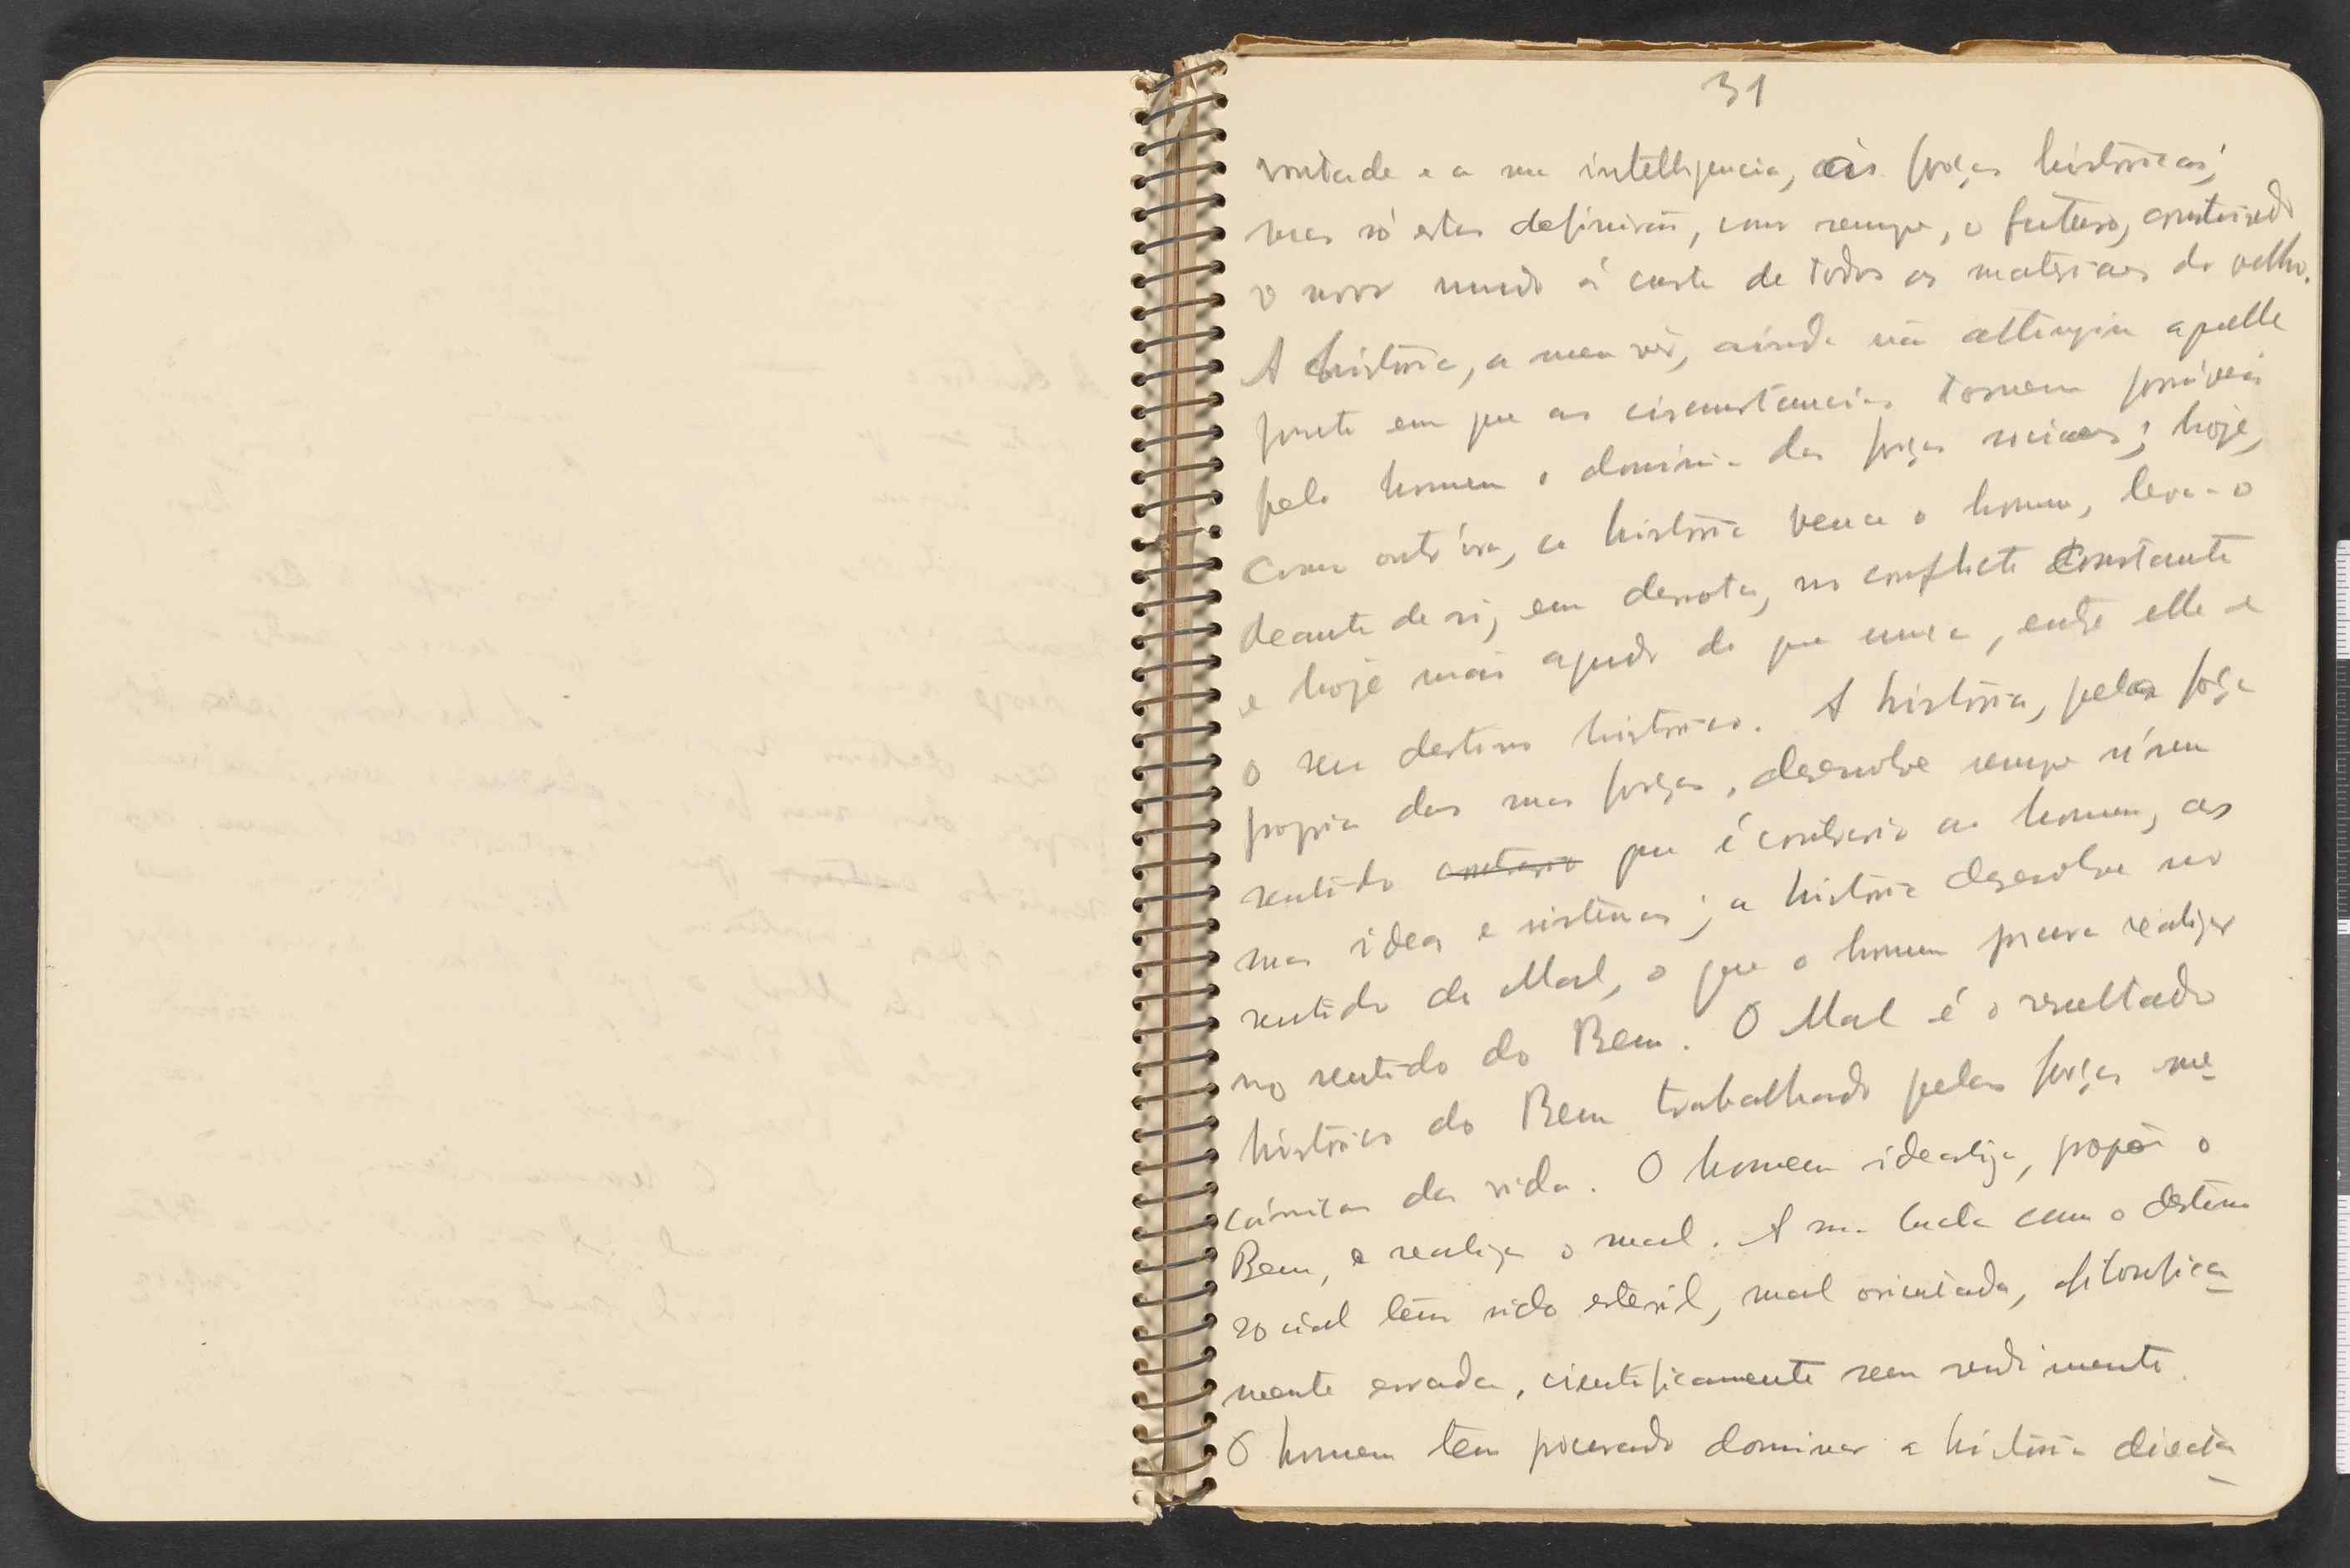 31
vontade e a sua intelligencia, ás forças historicas;
mas só estas definirão, como sempre, o futuro, construindo
o novo mundo á custa de todos os materiaes do velho.
A história, a meu vêr, ainda não attingiu aquelle
ponto em que as circumstancias tornem possíveis
pelo homem o dominio das forças sociaes; hoje,
como outr'ora, a história vence o homem, leva-o
deante de si, em derrota, no conflicto constante
e hoje mais agudo do que nunca, entre elle e
o seu destino historico. A história, pela força
propria das suas forças, desenvolve sempre n'um
sentido contrario que é contrario ao homem, as
suas ideas e sistemas; a história desenvolve no
sentido do Mal, o que o homem procura realizar
no sentido do Bem. O Mal é o resultado
histórico do Bem trabalhado pelas forças me-
cánicas da vida. O homem idealiza, propõe o
Bem, e realiza o mal. A sua lucta com o destino
social tem sido esteril, mal orientada, filosofica-
mente errada, cientificamente sem rendimento.
O homem tem procurado dominar a história directa-